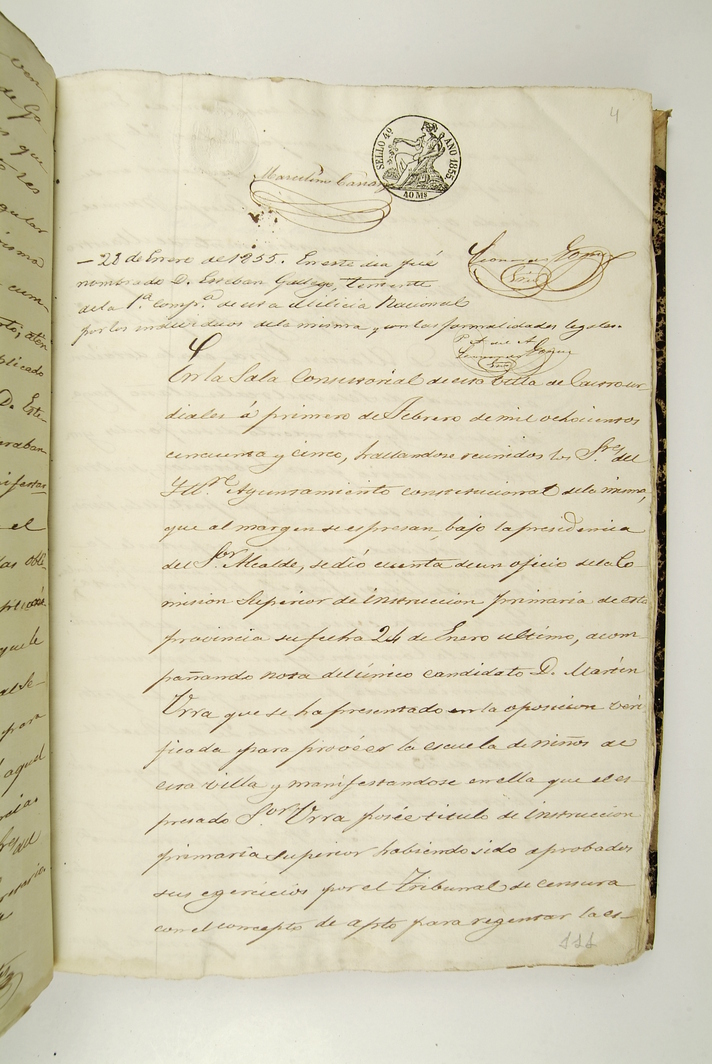 4
SELLO 4º AÑO 1855
40 Ms
Marcelino
— 28 de Enero de 1855. En este dia fué
nombrado D. Esteban Gallego, teniente
de la 1ª Compª de esta Milicia Nacional
por los individuos de la misma y con las formalidades legales.
Srio
P. A. del A.
Srio
En la Sala Consistorial de esta Villa de Castro ur-
diales á primero de Febrero de mil ochocientos
cincuenta y cinco, hallandose reunidos los Sres del
Illre Ayuntamiento constitucional de la misma,
que al margen se espresan, bajo la presidencia
del Sor Alcalde, se dió cuenta de un oficio de la Co
mision Superior de instruccion primaria de esta
provincia su fecha 24 de Enero ultimo, acom
pañando nota del único candidato D. Martin
Urra que se ha presentado en la oposicion veri
ficada para proveer la escuela de niños de
esta villa y manifestandose en ella que el es
presado Sor Urra posée titulo de instruccion
primaria superior habiendo sido aprobados
sus egercicios por el Tribunal de censura
con el concepto de apto para regentar la es-